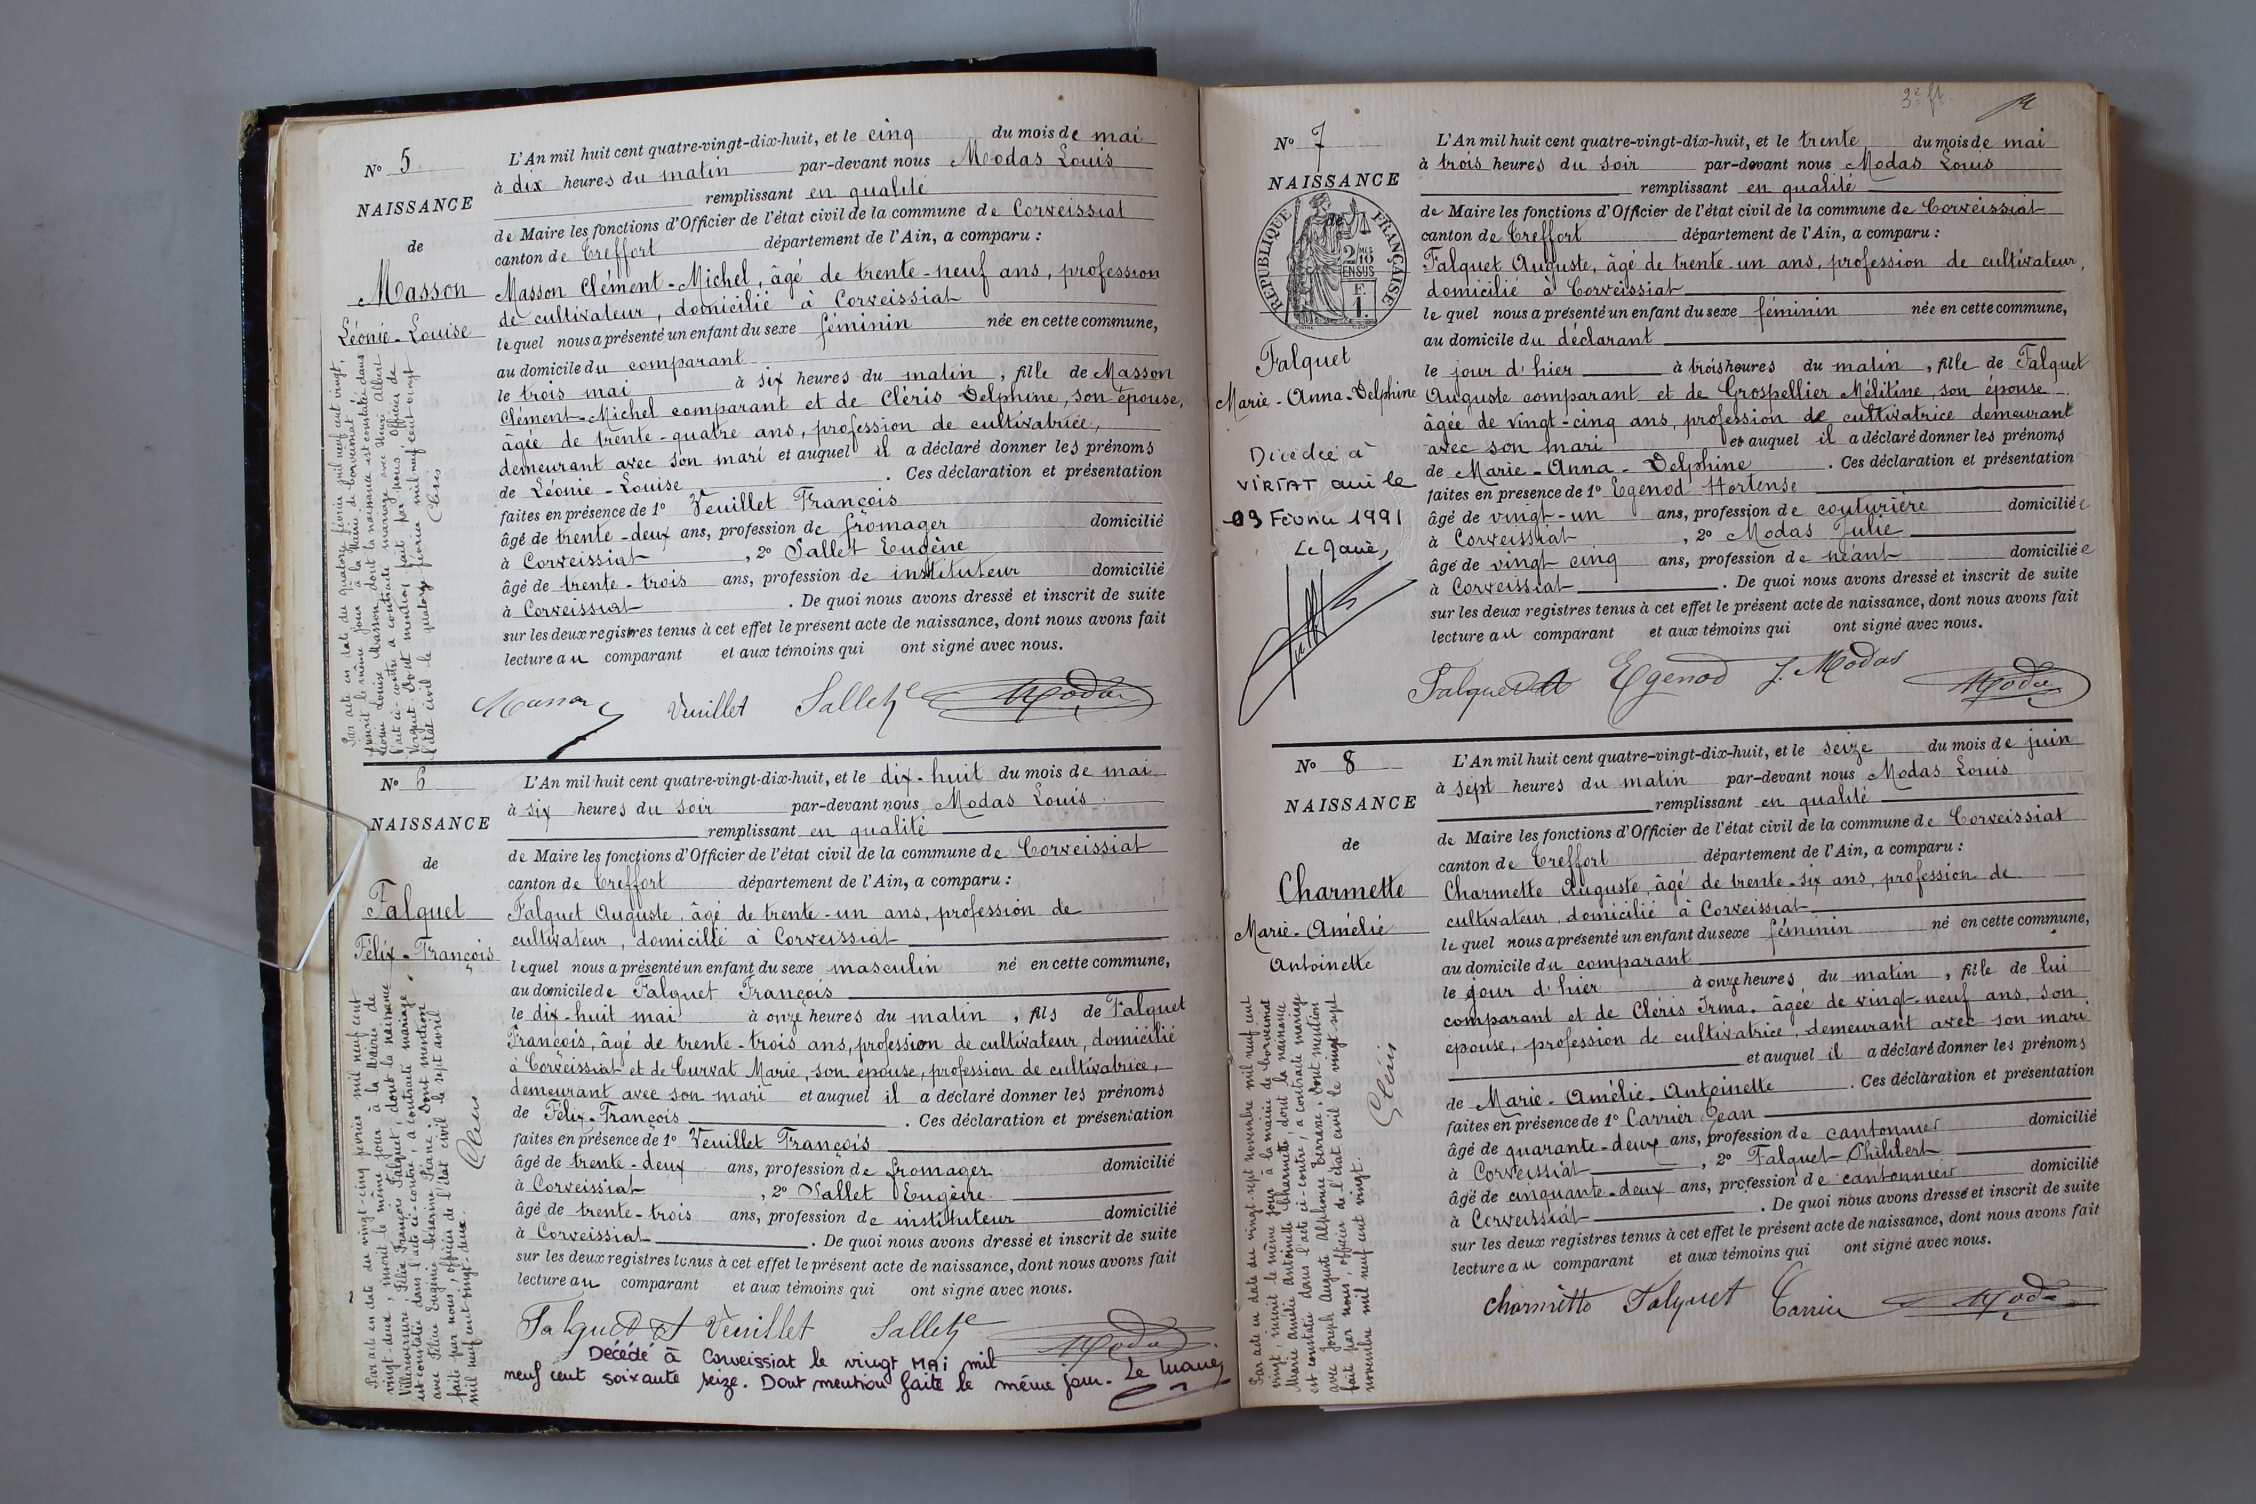 No 5
NAISSANCE
de
Masson
Léonie-Louise
L'An mil huit cent quatre-vingt-dix-huit, et le cinq du mois de mai
à dix heures du matin par-devant nous Modas Louis
remplissant en qualité
de Maire les fonctions d'Officier de l'état civil de la commune de Corveissiat
canton de Treffort département de l'Ain, a comparu :
Masson Clément-Michel, âgé de trente-neuf ans, profession
de cultivateur, domicilié à Corveissiat
lequel nous a présenté un enfant du sexe féminin née en cette commune,
au domicile du comparant
le trois mai à six heures du matin, fille de Masson
Clément-Michel comparant et de Cléris Delphine, son épouse,
âgée de trente-quatre ans, profession de cultivatrice,
demeurant avec son mari et auquel il a déclaré donner les prénoms
de Léonie-Louise. Ces déclaration et présentation
faites en présence de 1o Veuillet François
âgé de trente-deux ans, profession de fromager domicilié
à Corveissiat, 2o Sallet Eugène
âgé de trente-trois ans, profession de instituteur domicilié
à Corveissiat. De quoi nous avons dressé et inscrit de suite
sur les deux registres tenus à cet effet le présent acte de naissance, dont nous avons fait
lecture au comparant et aux témoins qui ont signé avec nous.
Masson Veuillet Sallet E Modas
Par acte en date du quatorze février mil neuf cent vingt,
inscrit le même jour à la Mairie de
Léonie Louise Masson, dont la naissance est constatée dans
l'acte ci-contre a contracté mariage avec Henri Albert
Verguet. Dont mention faite par nous, Officier de
l'état civil le quatorze février mil neuf cent vingt
Cléris
No 6
NAISSANCE
de
Falquet
Félix-François
L'An mil huit cent quatre-vingt-dix-huit, et le dix-huit du mois de mai
à six heures du soir par-devant nous Modas Louis
remplissant en qualité
de Maire les fonctions d'Officier de l'état civil de la commune de Corveissiat
canton de Treffort département de l'Ain, a comparu :
Falquet Auguste, âgé de trente-un ans, profession de
cultivateur, domicilié à Corveissiat
lequel nous a présenté un enfant du sexe masculin né en cette commune,
au domicile de Falquet François
le dix-huit mai à onze heures du matin, fils de Falquet
François, âgé de trente-trois ans, profession de cultivateur, domicilié
à Corveissiat et de Curvat Marie, son épouse, profession de cultivatrice,
demeurant avec son mari et auquel il a déclaré donner les prénoms
de Félix-François. Ces déclaration et présentation
faites en présence de 1o Veuillet François
âgé de trente-deux ans, profession de fromager domicilié
à Corveissiat, 2o Sallet Eugène
âgé de trente-trois ans, profession de instituteur domicilié
à Corveissiat. De quoi nous avons dressé et inscrit de suite
sur les deux registres tenus à cet effet le présent acte de naissance, dont nous avons fait
lecture au comparant et aux témoins qui ont signé avec nous.
Falquet A Veuillet Sallet E Modas
Décédé à Corveissiat le vingt MAi mil
neuf cent soixante seize. Dont mention faite le même jour. Le Maire,
Par acte en date du vingt-cinq février mil neuf cent
vingt-deux, inscrit le même jour à la Mairie de
Villereversure, Félix François Falquet, dont la naissance
est constatée dans l'acte ci-contre, a contracté mariage
avec Félicie Eugénie Piane. Dont mention
faite par nous, officier de l'état civil le sept avril
mil neuf cent vingt-deux.
Cléris
3e ft
No 7
NAISSANCE
de
RÉPUBLIQUE FRANÇAISE
2/10 EN SUS
F. 1.
Falquet
Marie-Anna-Delphine
Décédée à
VIRIAT ain le
03 Février 1991
Le Maire,
L'An mil huit cent quatre-vingt-dix-huit, et le trente du mois de mai
à trois heures du soir par-devant nous Modas Louis
remplissant en qualité
de Maire les fonctions d'Officier de l'état civil de la commune de Corveissiat
canton de Treffort département de l'Ain, a comparu :
Falquet Auguste, âgé de trente-un ans, profession de cultivateur,
domicilié à Corveissiat
lequel nous a présenté un enfant du sexe féminin née en cette commune,
au domicile du déclarant
le jour d'hier à trois heures du matin, fille de Falquet
Auguste comparant et de Grospellier Mélitine, son épouse
âgée de vingt-cinq ans, profession de cultivatrice demeurant
avec son mari et auquel il a déclaré donner les prénoms
de Marie-Anna-Delphine. Ces déclaration et présentation
faites en présence de 1o Egenod Hortense
âgé de vingt-un ans, profession de couturière domiciliée
à Corveissiat, 2o Modas Julie
âgée de vingt cinq ans, profession de néant domiciliée
à Corveissiat. De quoi nous avons dressé et inscrit de suite
sur les deux registres tenus à cet effet le présent acte de naissance, dont nous avons fait
lecture au comparant et aux témoins qui ont signé avec nous.
Falquet A Egenod J. Modas Modas
No 8
NAISSANCE
de
Charmette
Marie-Amélie
Antoinette
L'An mil huit cent quatre-vingt-dix-huit, et le seize du mois de juin
à sept heures du matin par-devant nous Modas Louis
remplissant en qualité
de Maire les fonctions d'Officier de l'état civil de la commune de Corveissiat
canton de Treffort département de l'Ain, a comparu :
Charmette Auguste, âgé de trente-six ans, profession de
cultivateur, domicilié à Corveissiat
lequel nous a présenté un enfant du sexe féminin né en cette commune,
au domicile du comparant
le jour d'hier à onze heures du matin, fille de lui
comparant et de Cléris Irma, âgée de vingt-neuf ans, son
épouse, profession de cultivatrice, demeurant avec son mari
et auquel il a déclaré donner les prénoms
de Marie-Amélie-Antoinette. Ces déclaration et présentation
faites en présence de 1o Carrier Jean
âgé de quarante-deux ans, profession de cantonnier domicilié
à Corveissiat, 2o Falquet Philibert
âgé de cinquante-deux ans, profession de cantonnier domicilié
à Corveissiat. De quoi nous avons dressé et inscrit de suite
sur les deux registres tenus à cet effet le présent acte de naissance, dont nous avons fait
lecture au comparant et aux témoins qui ont signé avec nous.
Charmette Falquet Carrier Modas
Par acte en date du vingt sept novembre mil neuf cent
vingt, inscrit le même jour à la mairie de
Marie Amélie Antoinette Charmette, dont la naissance
est constatée dans l'acte ci-contre, a contracté mariage
avec Joseph Auguste Alphonse Perrens. Dont mention
faite par nous, officier de l'état civil le vingt sept
novembre mil neuf cent vingt.
Cléris